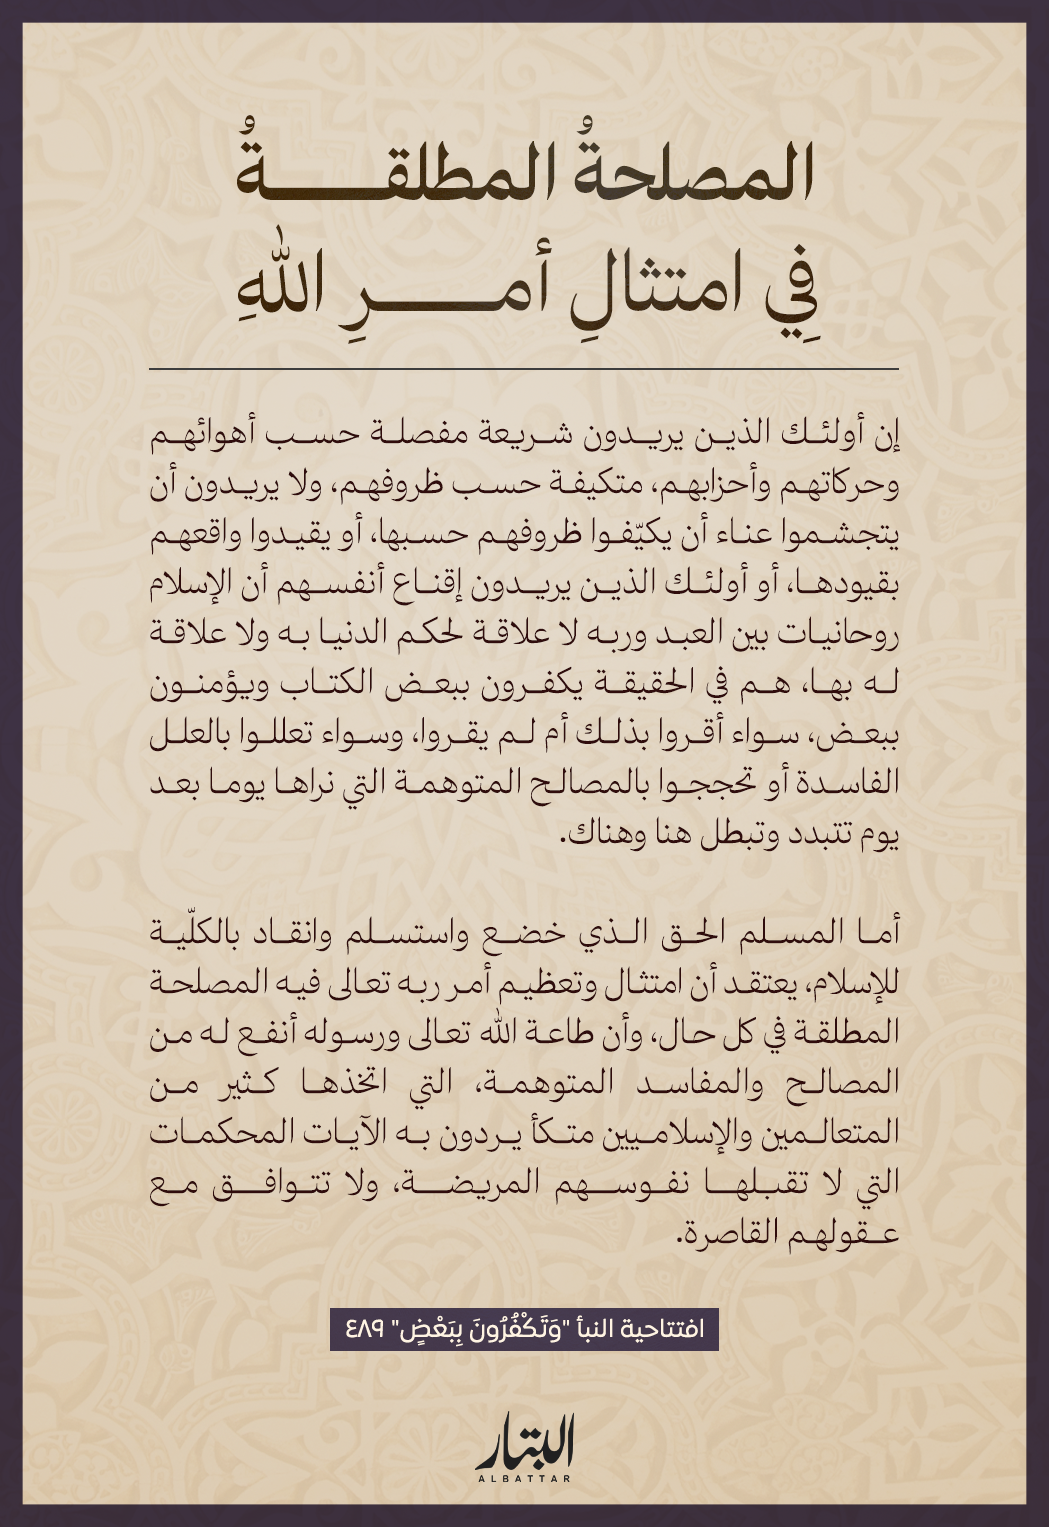 المصلحةُ المطلقـــــةُ
فِي امتثالِ أمـــــرِ اللهِ
إن أولئـك الذيـن يريـدون شـريعة مفصلـة حسـب أهوائهـم
وحركاتهـم وأحزابهـم، متكيفـة حسـب ظروفهـم، ولا يريـدون أن
يتجشـموا عنـاء أن يكيّفـوا ظروفهـم حسـبها، أو يقيـدوا واقعهـم
بقيودهـا، أو أولئـك الذيـن يريـدون إقنـاع أنفسـهم أن الإسلام
روحانيـات بين العبـد وربـه لا علاقـة لحكـم الدنيـا بـه ولا علاقـة
لـه بهـا، هـم في الحقيقـة يكفـرون ببعـض الكتـاب ويؤمنـون
ببعـض، سـواء أقـروا بذلـك أم لـم يقـروا، وسـواء تعللـوا بالعلـل
الفاسـدة أو تحججـوا بالمصالـح المتوهمـة التي نراهـا يومـا بعـد
يوم تتبدد وتبطل هنا وهناك.
أمـا المسـلم الحـق الـذي خضـع واستسـلم وانقـاد بالكلّيـة
للإسلام، يعتقـد أن امتثـال وتعظيـم أمـر ربـه تعـالى فيـه المصلحـة
المطلقـة في كل حـال، وأن طاعـة الله تعـالى ورسـوله أنفـع لـه مـن
المصالـح والمفاسـد المتوهمـة، التي اتخذهـا كـثير مـن
المتعالـمين والإسلامـيين متـكأ يـردون بـه الآيـات المحكمـات
التي لا تقبـلهـا نفـوسـهم المريضـة، ولا تتـوافـق مـع
عـقولهـم القاصرة.
افتتاحية النبأ "وَتَكْفُرُونَ بِبَعْضٍ" ٤٨٩
البتار
ALBATTAR